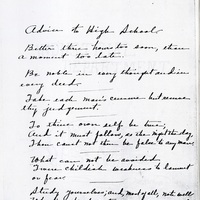 Advice to High School.
Better three hours too soon, than
a moment too late.
Be noble in every thought and in
every deed.
Take each man's censure but reserve
thy judgement.
To thine own self be true,
And it must follow, as the night the day,
Thou can'st not then be false to any man.
What can not be avoided
'Twere childish weakness to lament
or fear
Study yourselves; and, most of all, note well